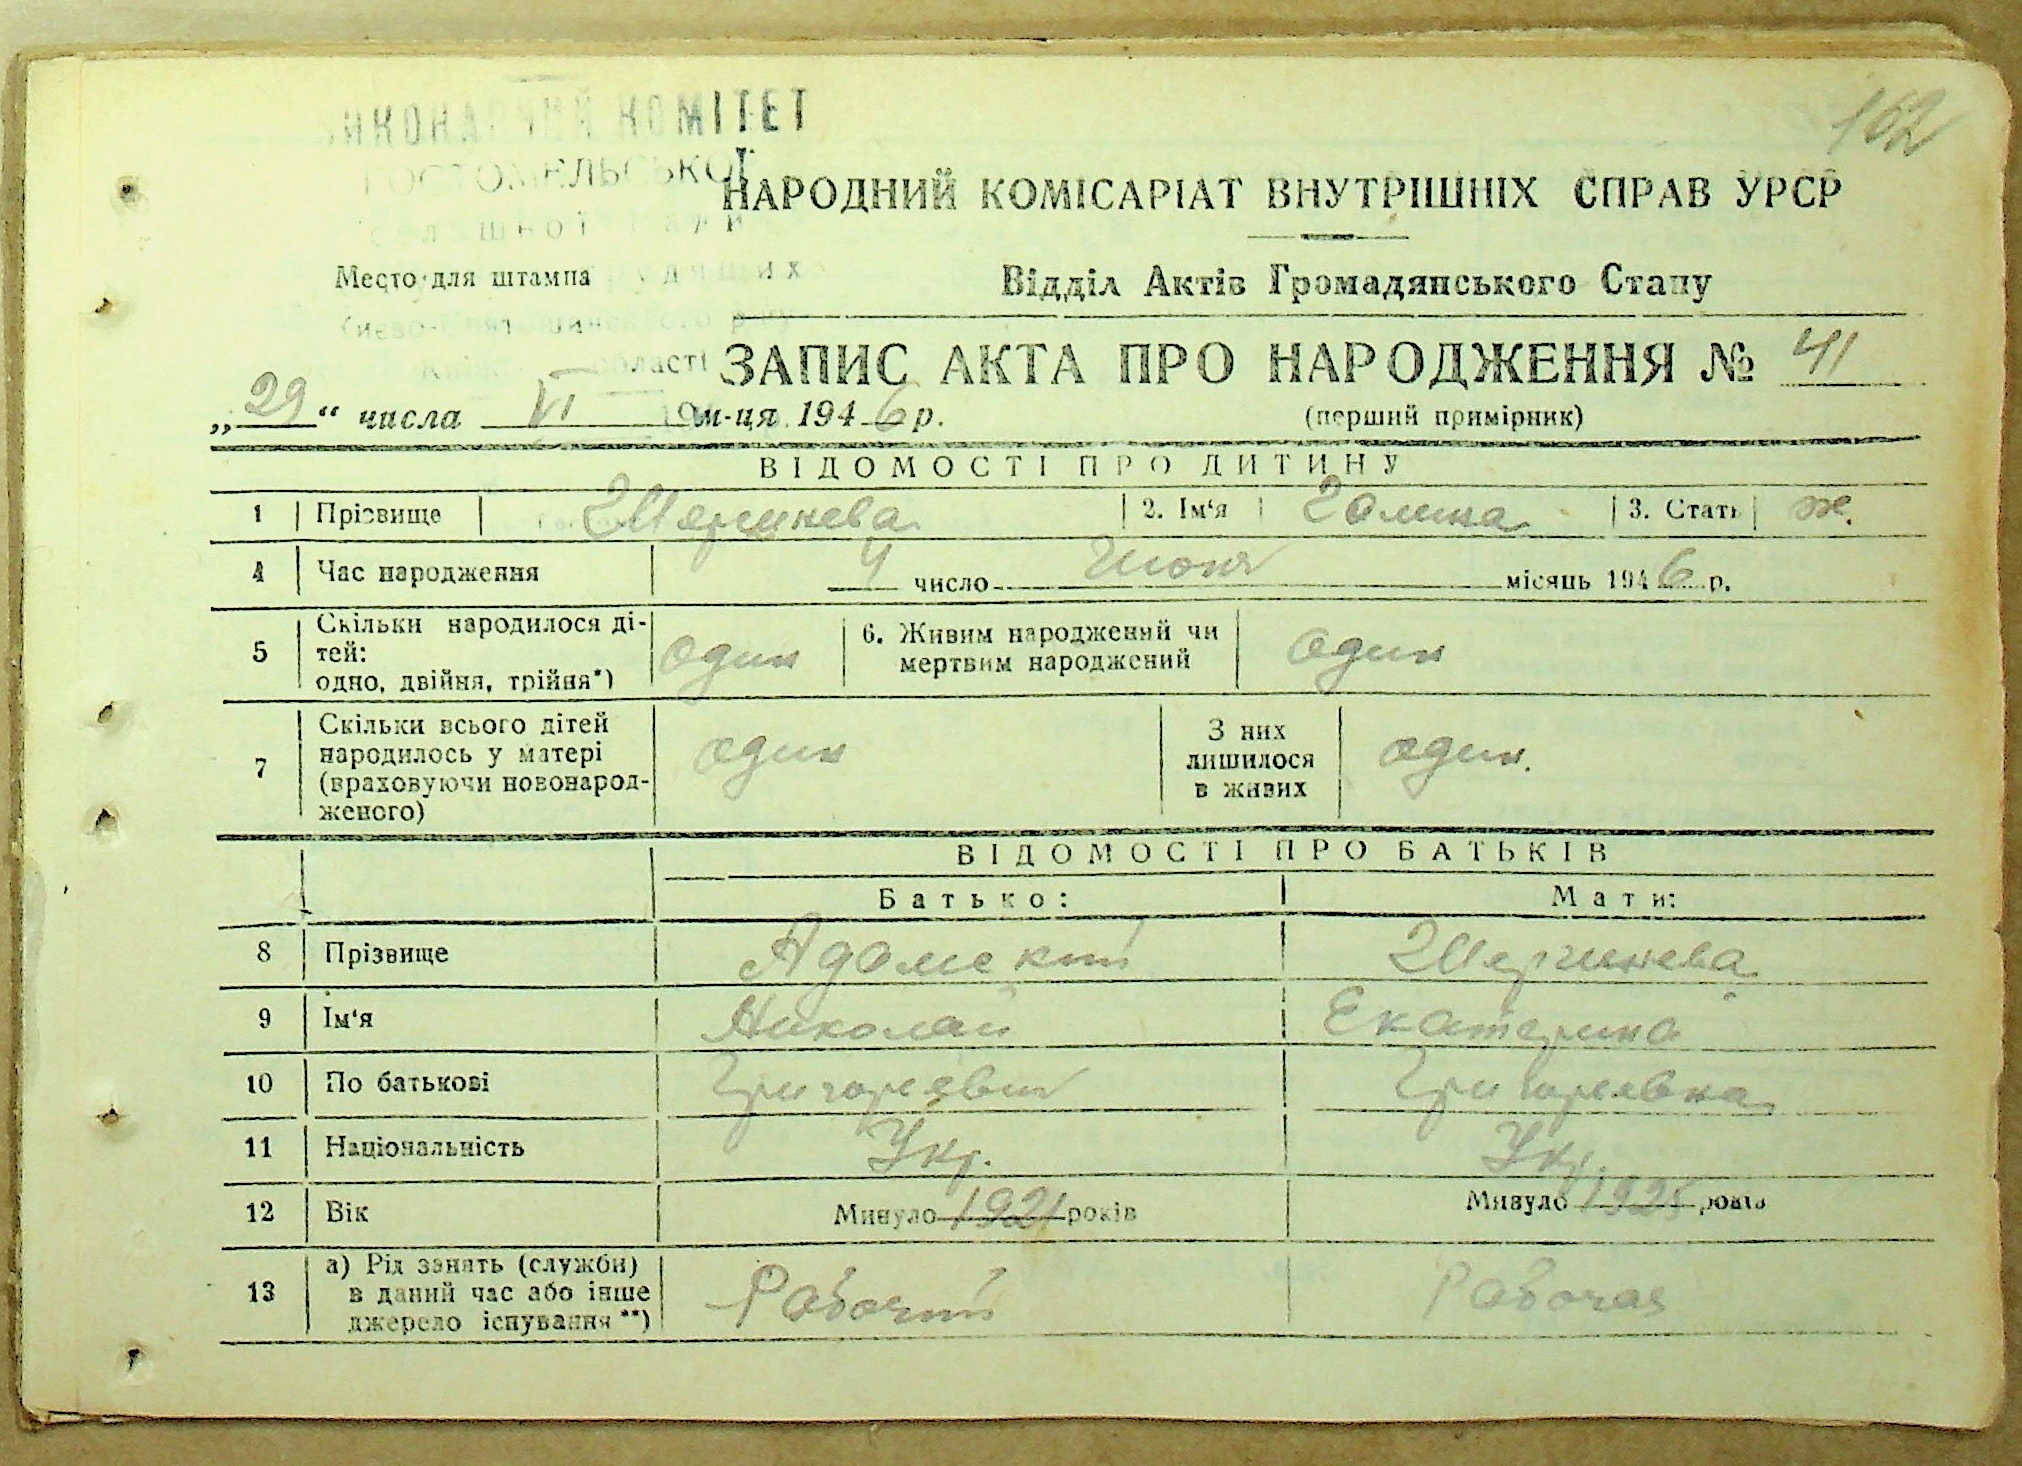 162
ВИКОНАВЧИЙ КОМІТЕТ
ГОСТОМЕЛЬСЬКОЇ
НАРОДНИЙ КОМІСАРІАТ ВНУТРІШНІХ СПРАВ УРСР
Место для штампа
Відділ Актів Громадянського Стану
області
ЗАПИС АКТА ПРО НАРОДЖЕННЯ № 41
„29“ числа VI м-ця 1946 р.
(перший примірник)
ВІДОМОСТІ ПРО ДИТИНУ
1 Прізвище 2. Ім‘я Галина 3. Стать ж.
4 Час народження 4 число Июня місяць 1946 р.
5 Скільки народилося ді-
тей:
одно, двійня, трійня*) один 6. Живим народжений чи
мертвим народжений один
7 Скільки всього дітей
народилось у матері
(враховуючи новонарод-
женого) один З них
лишилося
в живих один.
ВІДОМОСТІ ПРО БАТЬКІВ
Батько: Мати:
8 Прізвище
9 Ім‘я Николай Екатерина
10 По батькові Григорьевна
11 Національність Укр. Укр.
12 Вік Минуло 1921 років Минуло 1925 років
13 а) Рід занять (служби)
в даний час або інше
джерело існування **) Рабочий Рабочая